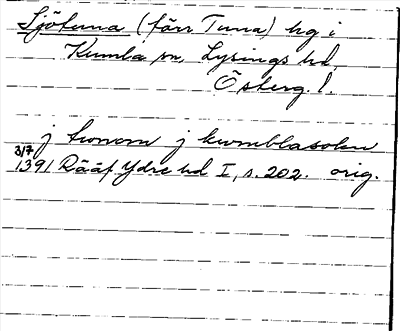 Sjötuna (förr Tuna) hg i
Kumla sn, Lysings hd,
Österg. l.
j tunom j kumblasokn
3/7
1391 Rääf Ydre hd I, s. 202. orig.